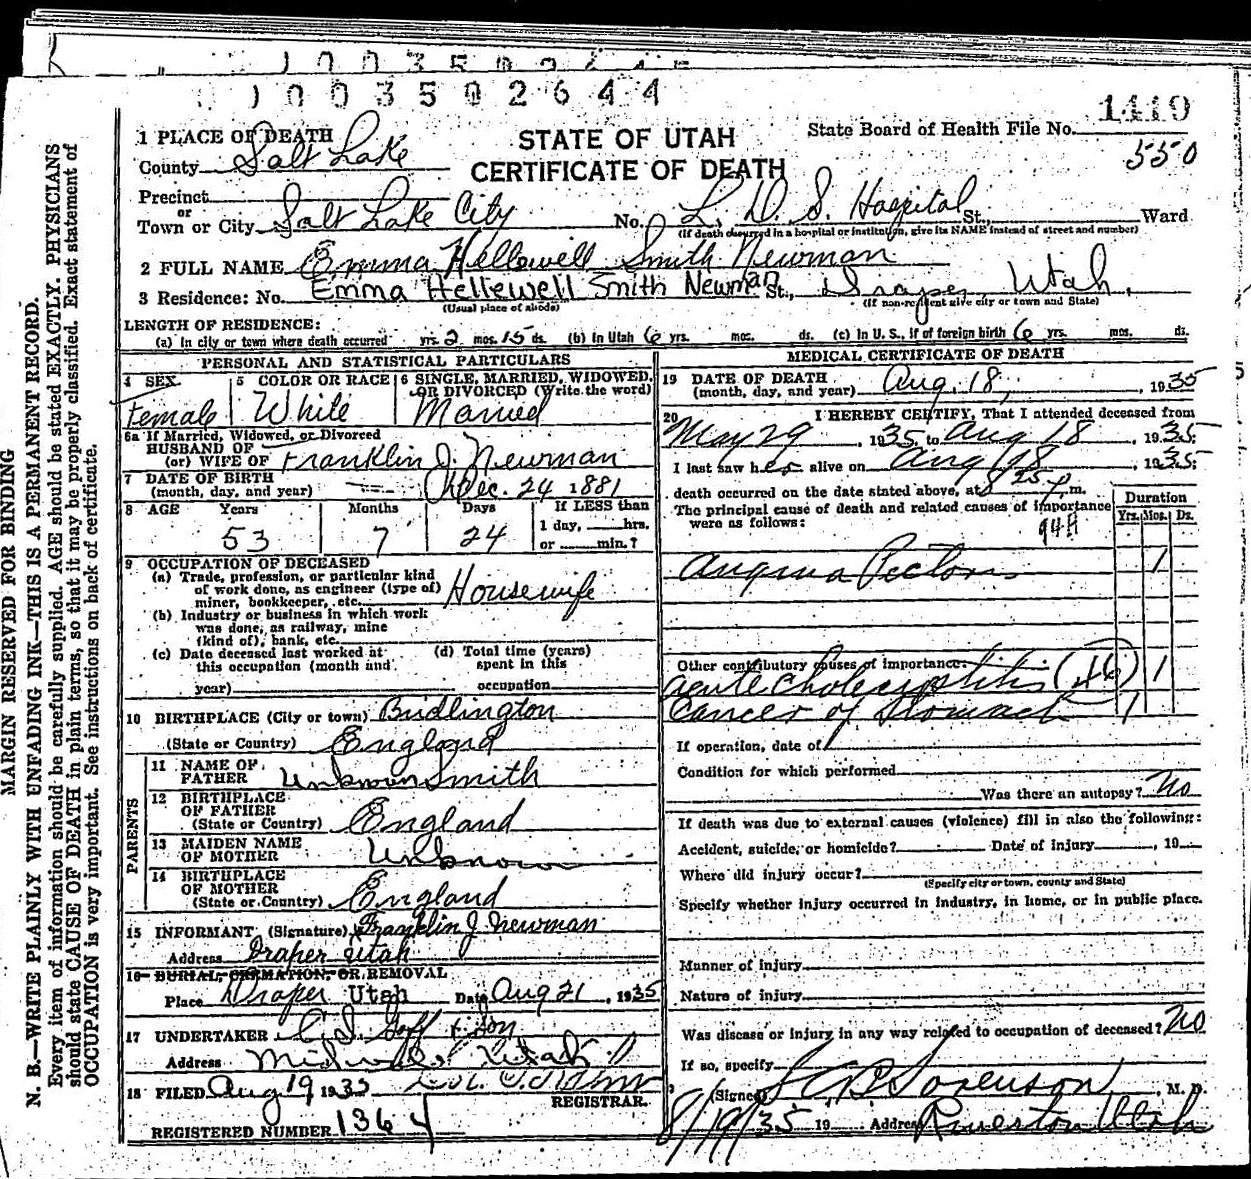 1003502644
1003502644
1419
1 PLACE OF DEATH
STATE OF UTAH
State Board of Health File No.
County Salt Lake
CERTIFICATE OF DEATH
550
Precinct
or
Town or City Salt Lake City No. L. D. S. Hospital St., Ward
(If death occurred in a hospital or institution, give its NAME instead of street and number)
2 FULL NAME Emma Hellewell Smith Newman
3 Residence: No. Emma Hellewell Smith Newman St., Draper, Utah.
(Usual place of abode) (If non-resident give city or town and State)
LENGTH OF RESIDENCE:
(a) In city or town where death occurred yrs. 2 mos. 15 ds. (b) In Utah 6 yrs. mos. ds. (c) In U. S., if of foreign birth 6 yrs. mos. ds.
PERSONAL AND STATISTICAL PARTICULARS
4 SEX Female
5 COLOR OR RACE White
6 SINGLE, MARRIED, WIDOWED, OR DIVORCED (Write the word) Married
6a If Married, Widowed, or Divorced
HUSBAND OF
(or) WIFE OF Franklin J. Newman
7 DATE OF BIRTH
(month, day, and year) Dec. 24 1881
8 AGE Years Months Days If LESS than
53 7 24 1 day, hrs.
or min.?
9 OCCUPATION OF DECEASED
(a) Trade, profession, or particular kind
of work done, as engineer (type of)
miner, bookkeeper, etc. Housewife
(b) Industry or business in which work
was done, as railway, mine
(kind of), bank, etc.
(c) Date deceased last worked at
this occupation (month and
year)
(d) Total time (years)
spent in this
occupation
10 BIRTHPLACE (City or town) Bridlington
(State or Country) England
PARENTS
11 NAME OF
FATHER Unknown Smith
12 BIRTHPLACE
OF FATHER
(State or Country) England
13 MAIDEN NAME
OF MOTHER Unknown
14 BIRTHPLACE
OF MOTHER
(State or Country) England
15 INFORMANT (Signature) Franklin J. Newman
Address Draper Utah
16 BURIAL, CREMATION, OR REMOVAL
Place Draper Utah Date Aug 21, 1935
17 UNDERTAKER Goff & Son
Address Midvale Utah
18 FILED Aug 19 1935
REGISTRAR.
REGISTERED NUMBER 1364
MEDICAL CERTIFICATE OF DEATH
19 DATE OF DEATH
(month, day, and year) Aug. 18, 1935
20 I HEREBY CERTIFY, That I attended deceased from
May 29, 1935, to Aug 18, 1935;
I last saw her alive on Aug 18, 1935;
death occurred on the date stated above, at 8 25 p. m.
The principal cause of death and related causes of importance
were as follows:
Duration
Yrs. Mos. Ds.
94H
Angina Pectoris 1
Other contributory causes of importance:
acute cholecystitis 1
Cancer of stomach 1
If operation, date of
Condition for which performed
Was there an autopsy? No
If death was due to external causes (violence) fill in also the following:
Accident, suicide, or homicide? Date of injury, 19
Where did injury occur?
(Specify city or town, county and State)
Specify whether injury occurred in industry, in home, or in public place.
Manner of injury
Nature of injury
Was disease or injury in any way related to occupation of deceased? No
If so, specify
(Signed) Sorenson, M. D.
8/19/35 19 Address Riverton Utah
MARGIN RESERVED FOR BINDING
N. B.—WRITE PLAINLY WITH UNFADING INK—THIS IS A PERMANENT RECORD.
Every item of information should be carefully supplied. AGE should be stated EXACTLY. PHYSICIANS
should state CAUSE OF DEATH in plain terms, so that it may be properly classified. Exact statement of
OCCUPATION is very important. See instructions on back of certificate.